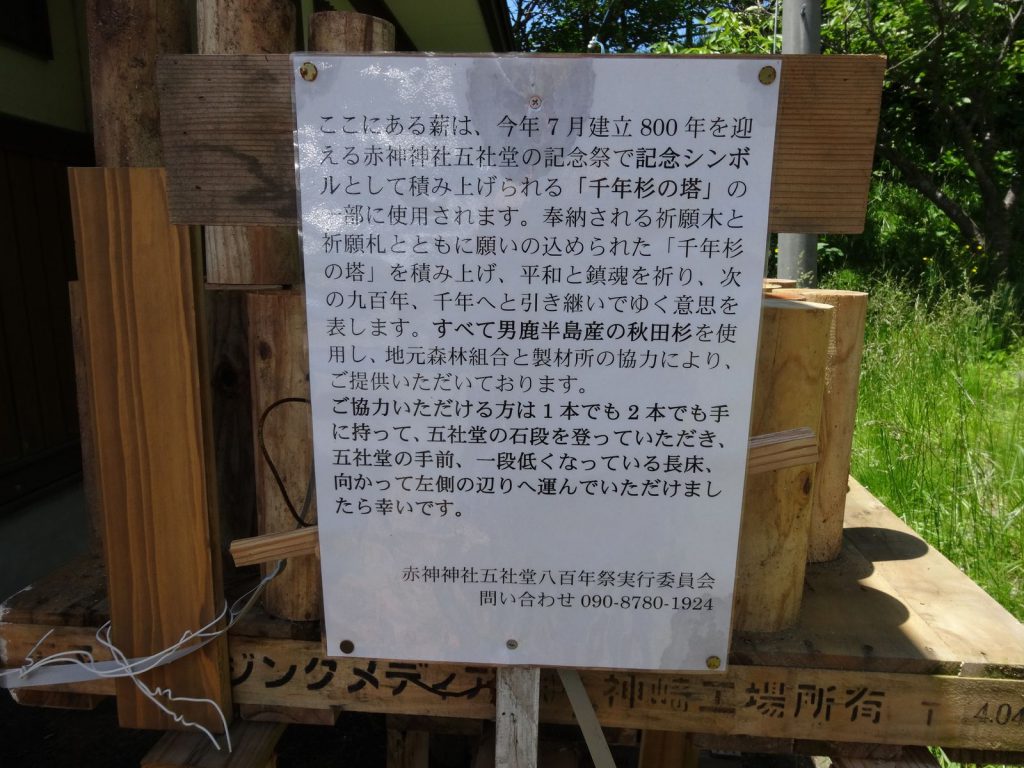 ここにある薪は、今年7月建立800年を迎
える赤神神社五社堂の記念祭で記念シンボ
ルとして積み上げられる「千年杉の塔」の
一部に使用されます。奉納される祈願木と
祈願札とともに願いの込められた「千年杉
の塔」を積み上げ、平和と鎮魂を祈り、次
の九百年、千年へと引き継いでゆく意思を
表します。すべて男鹿半島産の秋田杉を使
用し、地元森林組合と製材所の協力により、
ご提供いただいております。
ご協力いただける方は1本でも2本でも手
に持って、五社堂の石段を登っていただき、
五社堂の手前、一段低くなっている長床、
向かって左側の辺りへ運んでいただけまし
たら幸いです。
赤神神社五社堂八百年祭実行委員会
問い合わせ 090-8780-1924
ジンクメディア 神崎工場所有 T 4.04